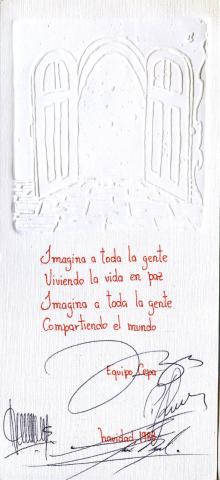 Imagina a toda la gente
Viviendo la vida en paz
Imagina a toda la gente
Compartiendo el mundo
Equipo Cepa
navidad 1988